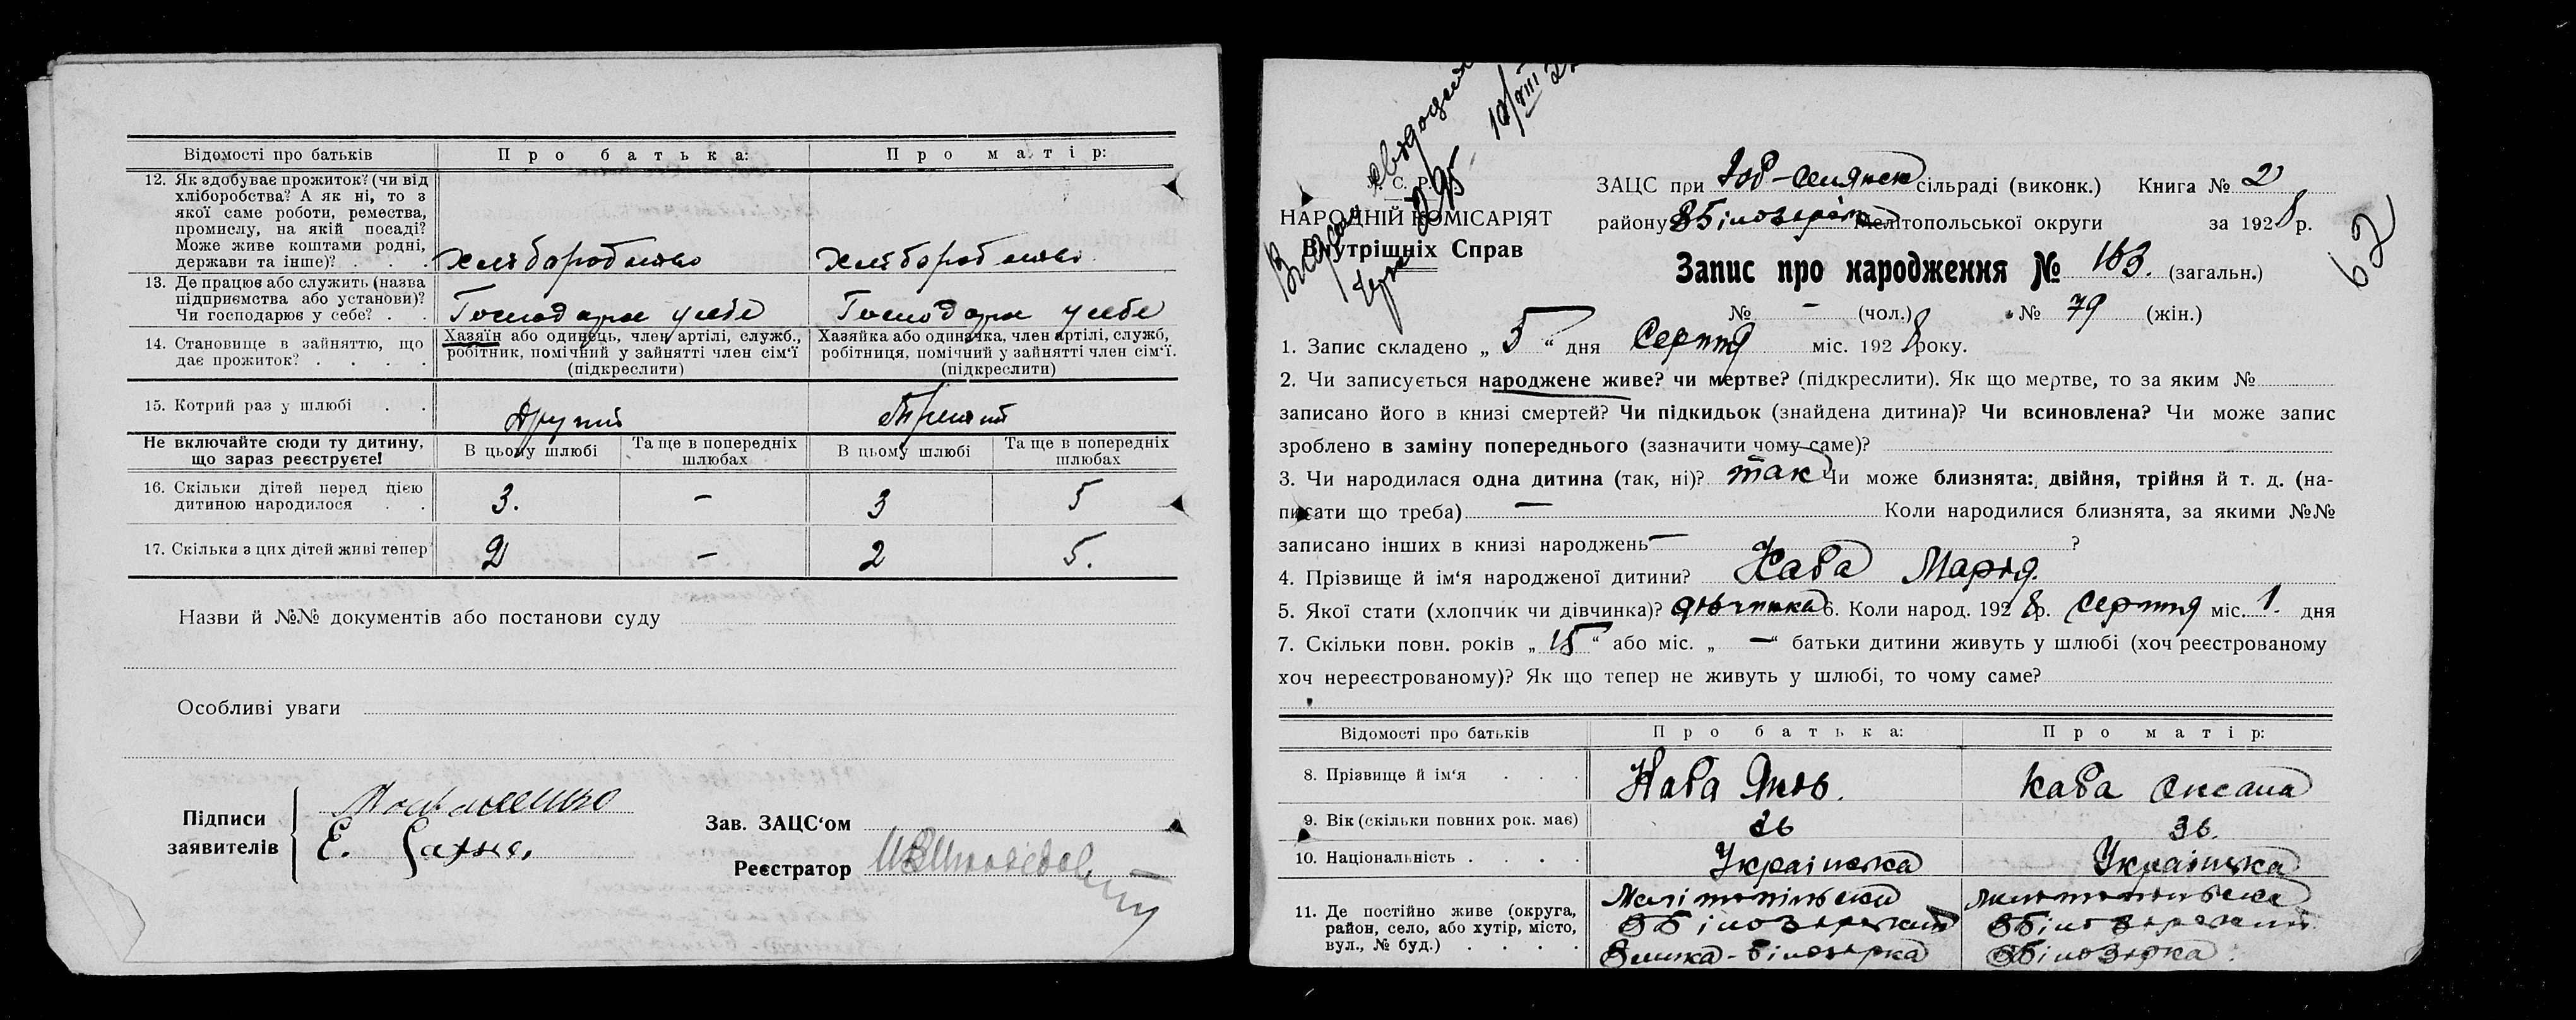 Відомості про батьків
Про батька:
Про матір:
12. Як здобуває прожиток? (чи від
хліборобства? А як ні, то з
якої саме роботи, ремества,
промислу, на якій посаді?
Може живе коштами родні,
держави та інше)? . .
Хліборобство
Хліборобство
13. Де працює або служить (назва
підприємства або установи)?
Чи господарює у себе? . .
Господарює у себе
Господарює у себе
14. Становище в зайняттю, що
дає прожиток? . . . .
Хазяїн або одинець, член артілі, служб.,
робітник, помічний у зайнятті член сім'ї
(підкреслити)
Хазяйка або одиначка, член артілі, служб,
робітниця, помічний у зайнятті член сім'ї.
(підкреслити)
15. Котрий раз у шлюбі . .
Другий
Третий
Не включайте сюди ту дитину,
що зараз реєструєте!
В цьому шлюбі
Та ще в попередніх
шлюбах
В цьому шлюбі
Та ще в попередніх
шлюбах
16. Скільки дітей перед цією
дитиною народилося . .
3. - 3 5
17. Скільки з цих дітей живі тепер
2 - 2 5.
Назви й №№ документів або постанови суду
Особливі уваги
Підписи
заявителів
Е.
Зав. ЗАЦС'ом
Реєстратор
295 10/VIII
С. Р.
НАРОДНІЙ КОМІСАРІЯТ
Внутрішніх Справ
ЗАЦС при сільраді (виконк.) Книга № 2
району ВБілозерськ Мелітопольської округи за 1928 р.
62
Запис про народження № 153. (загальн.)
№ - (чол.) № 79 (жін.)
1. Запис складено „ 5 “ дня Серпня міс. 1928 року.
2. Чи записується народжене живе? чи мертве? (підкреслити). Як що мертве, то за яким №
записано його в книзі смертей? Чи підкидьок (знайдена дитина)? Чи всиновлена? Чи може запис
зроблено в заміну попереднього (зазначити чому саме)?
3. Чи народилася одна дитина (так, ні)? так Чи може близнята: двійня, трійня й т. д. (на-
писати що треба) — Коли народилися близнята, за якими №№
записано інших в книзі народжень — ?
4. Прізвище й ім'я народженої дитини? Каба Марія.
5. Якої стати (хлопчик чи дівчинка)? дівчинка 6. Коли народ. 1928 р. серпня міс. 1. дня
7. Скільки повн. років „ 15 “ або міс. „ — “ батьки дитини живуть у шлюбі (хоч реєстрованому
хоч нереєстрованому)? Як що тепер не живуть у шлюбі, то чому саме?
Відомості про батьків
Про батька:
Про матір:
8. Прізвище й ім'я . . .
Каба Яків.
Каба Оксана
9. Вік (скільки повних рок. має)
36
36.
10. Національність . . . .
Українська
Українська
11. Де постійно живе (округа,
район, село, або хутір, місто,
вул., № буд.) . . . .
Мелітопільська
ВБілозерский
Велика-Білозерка
Мелітопільська
ВБілозерский
ВБілозерка